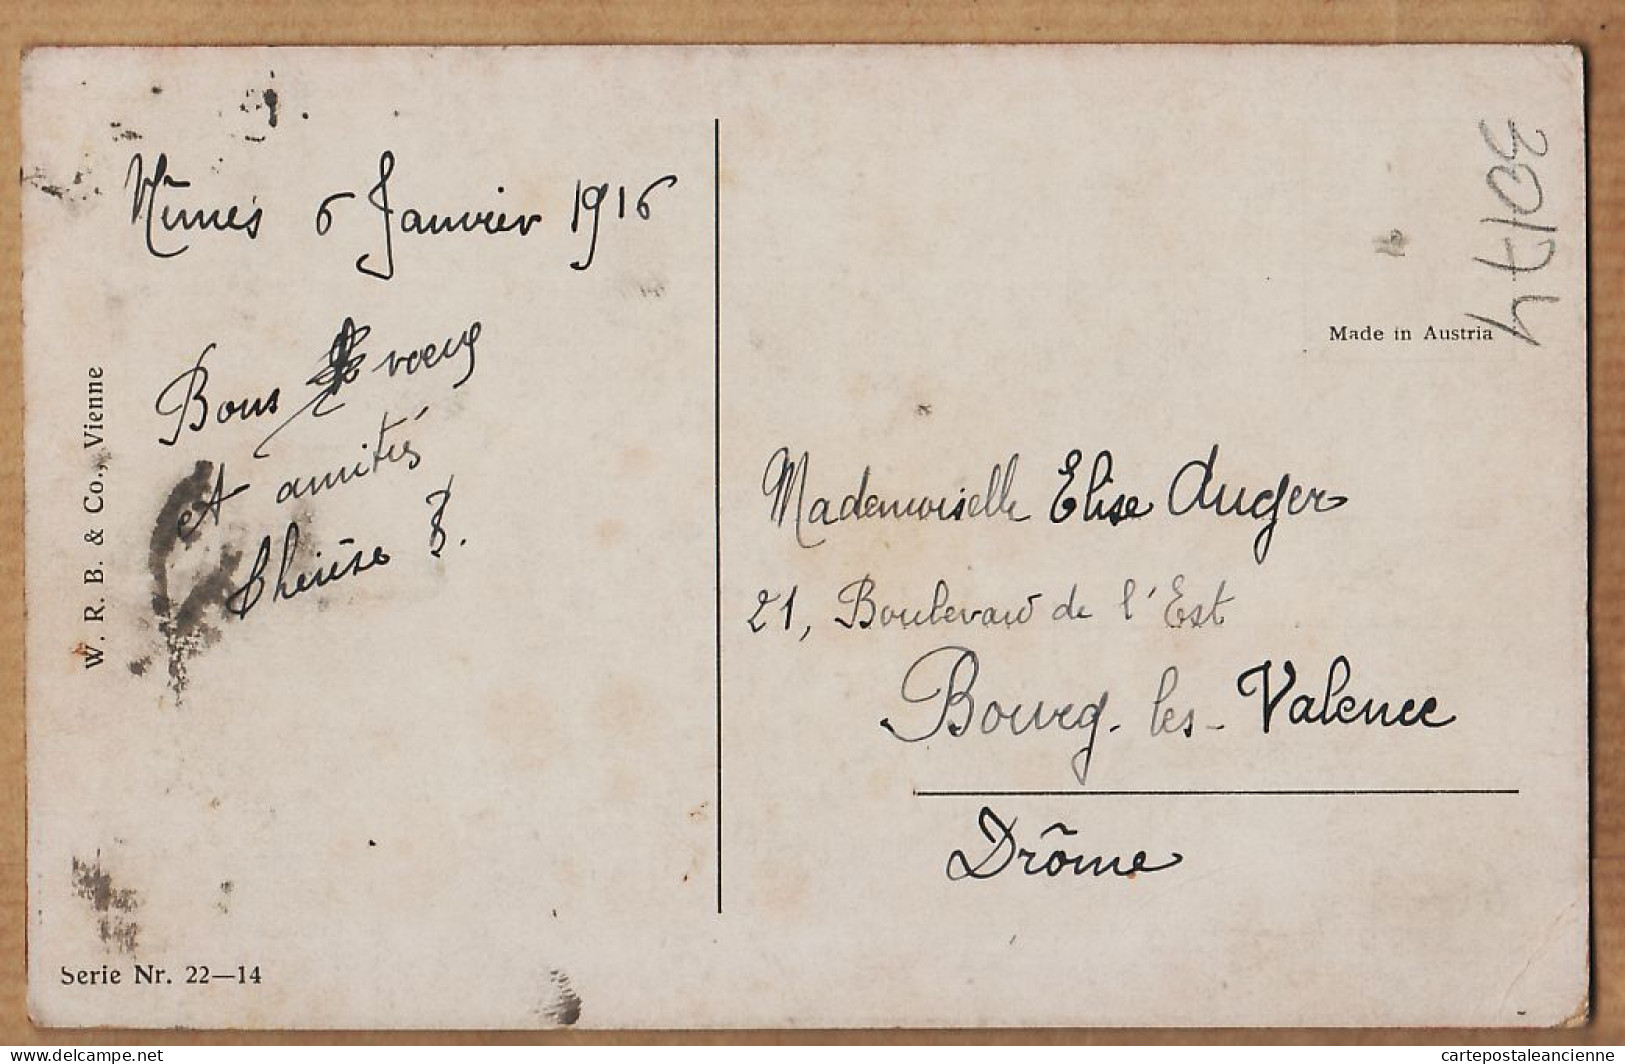 Nîmes 6 Janvier 1916
Bons vœux
et amitiés
Thérèse B.
W. R. B. & Co., Vienne
Serie Nr. 22—14
30174
Made in Austria
Mademoiselle Elise Auger
21, Boulevard de l'Est
Bourg-les-Valence
Drôme
delcampe.net
cartepostaleancienne